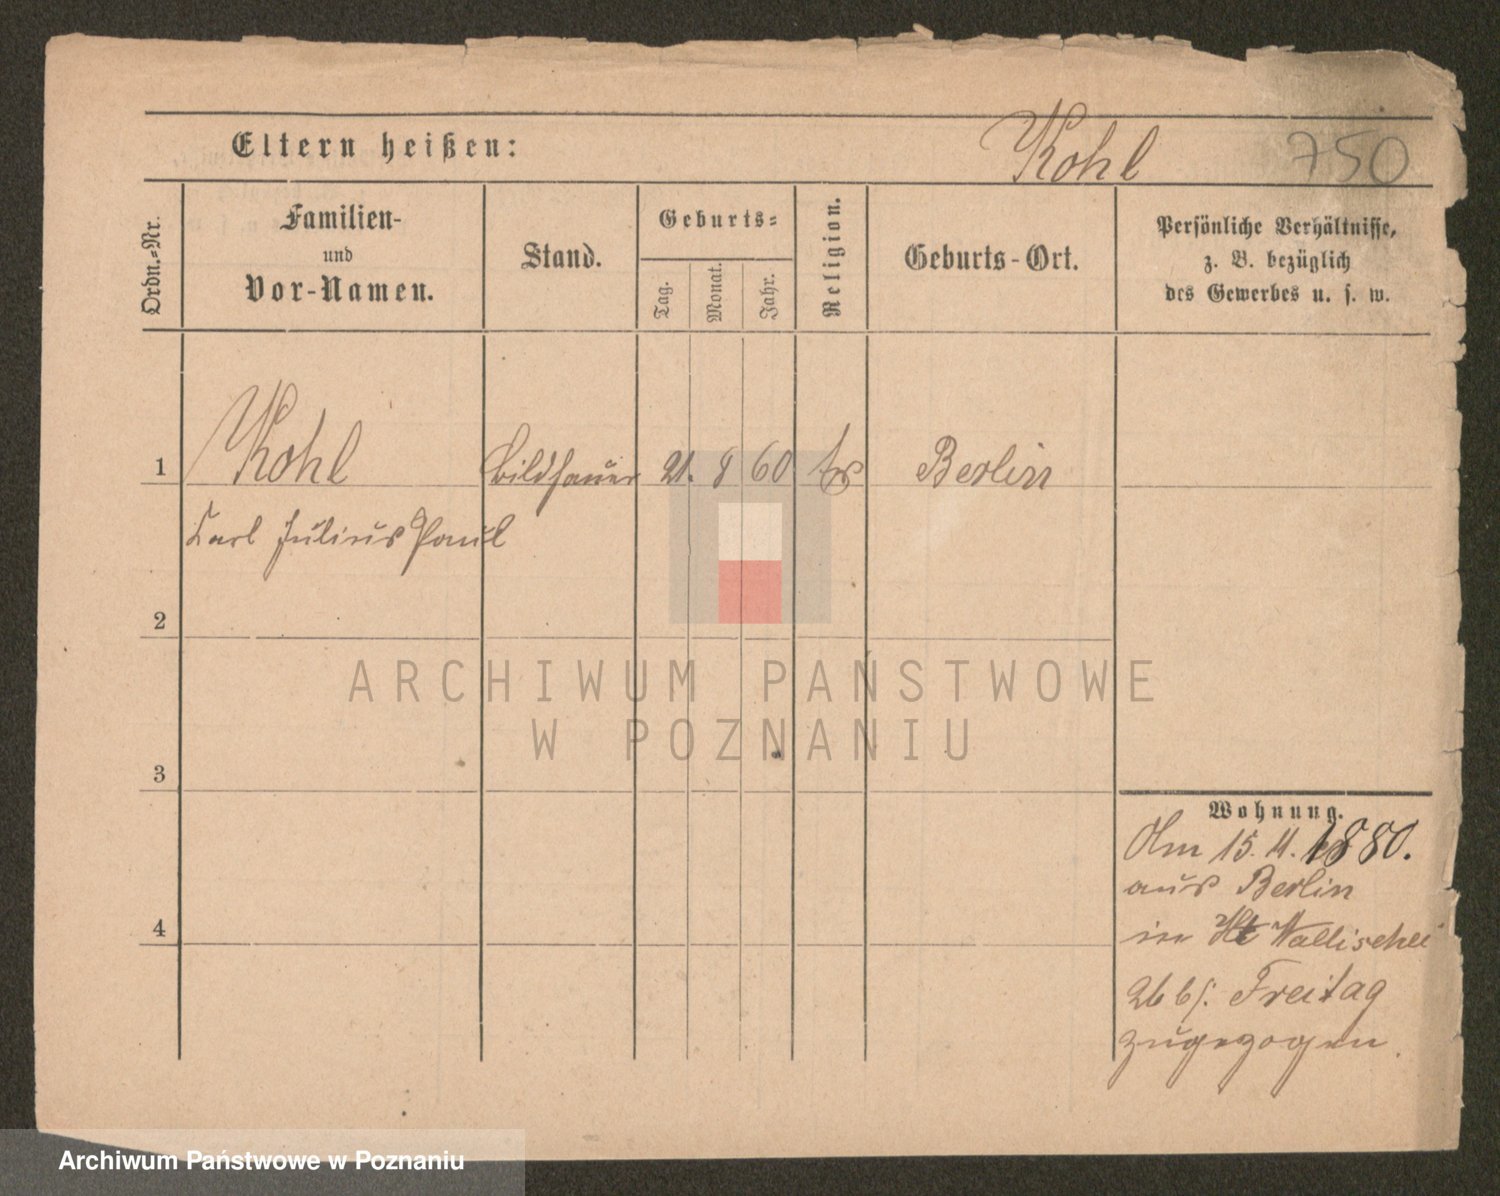 Eltern heißen:
Kohl
750
Ordn.-Nr.
Familien-
und
Vor-Namen.
Stand.
Geburts-
Tag.
Monat.
Jahr.
Religion.
Geburts-Ort.
Persönliche Verhältnisse,
z. B. bezüglich
des Gewerbes u. s. w.
1
Kohl
Bildhauer
21.
8
60
Berlin
Carl Julius Paul
2
3
4
Wohnung.
Am 15. 11. 1880.
aus Berlin
in Wallischei
26 b/. Freitag
zugezogen.
ARCHIWUM PAŃSTWOWE
W POZNANIU
Archiwum Państwowe w Poznaniu